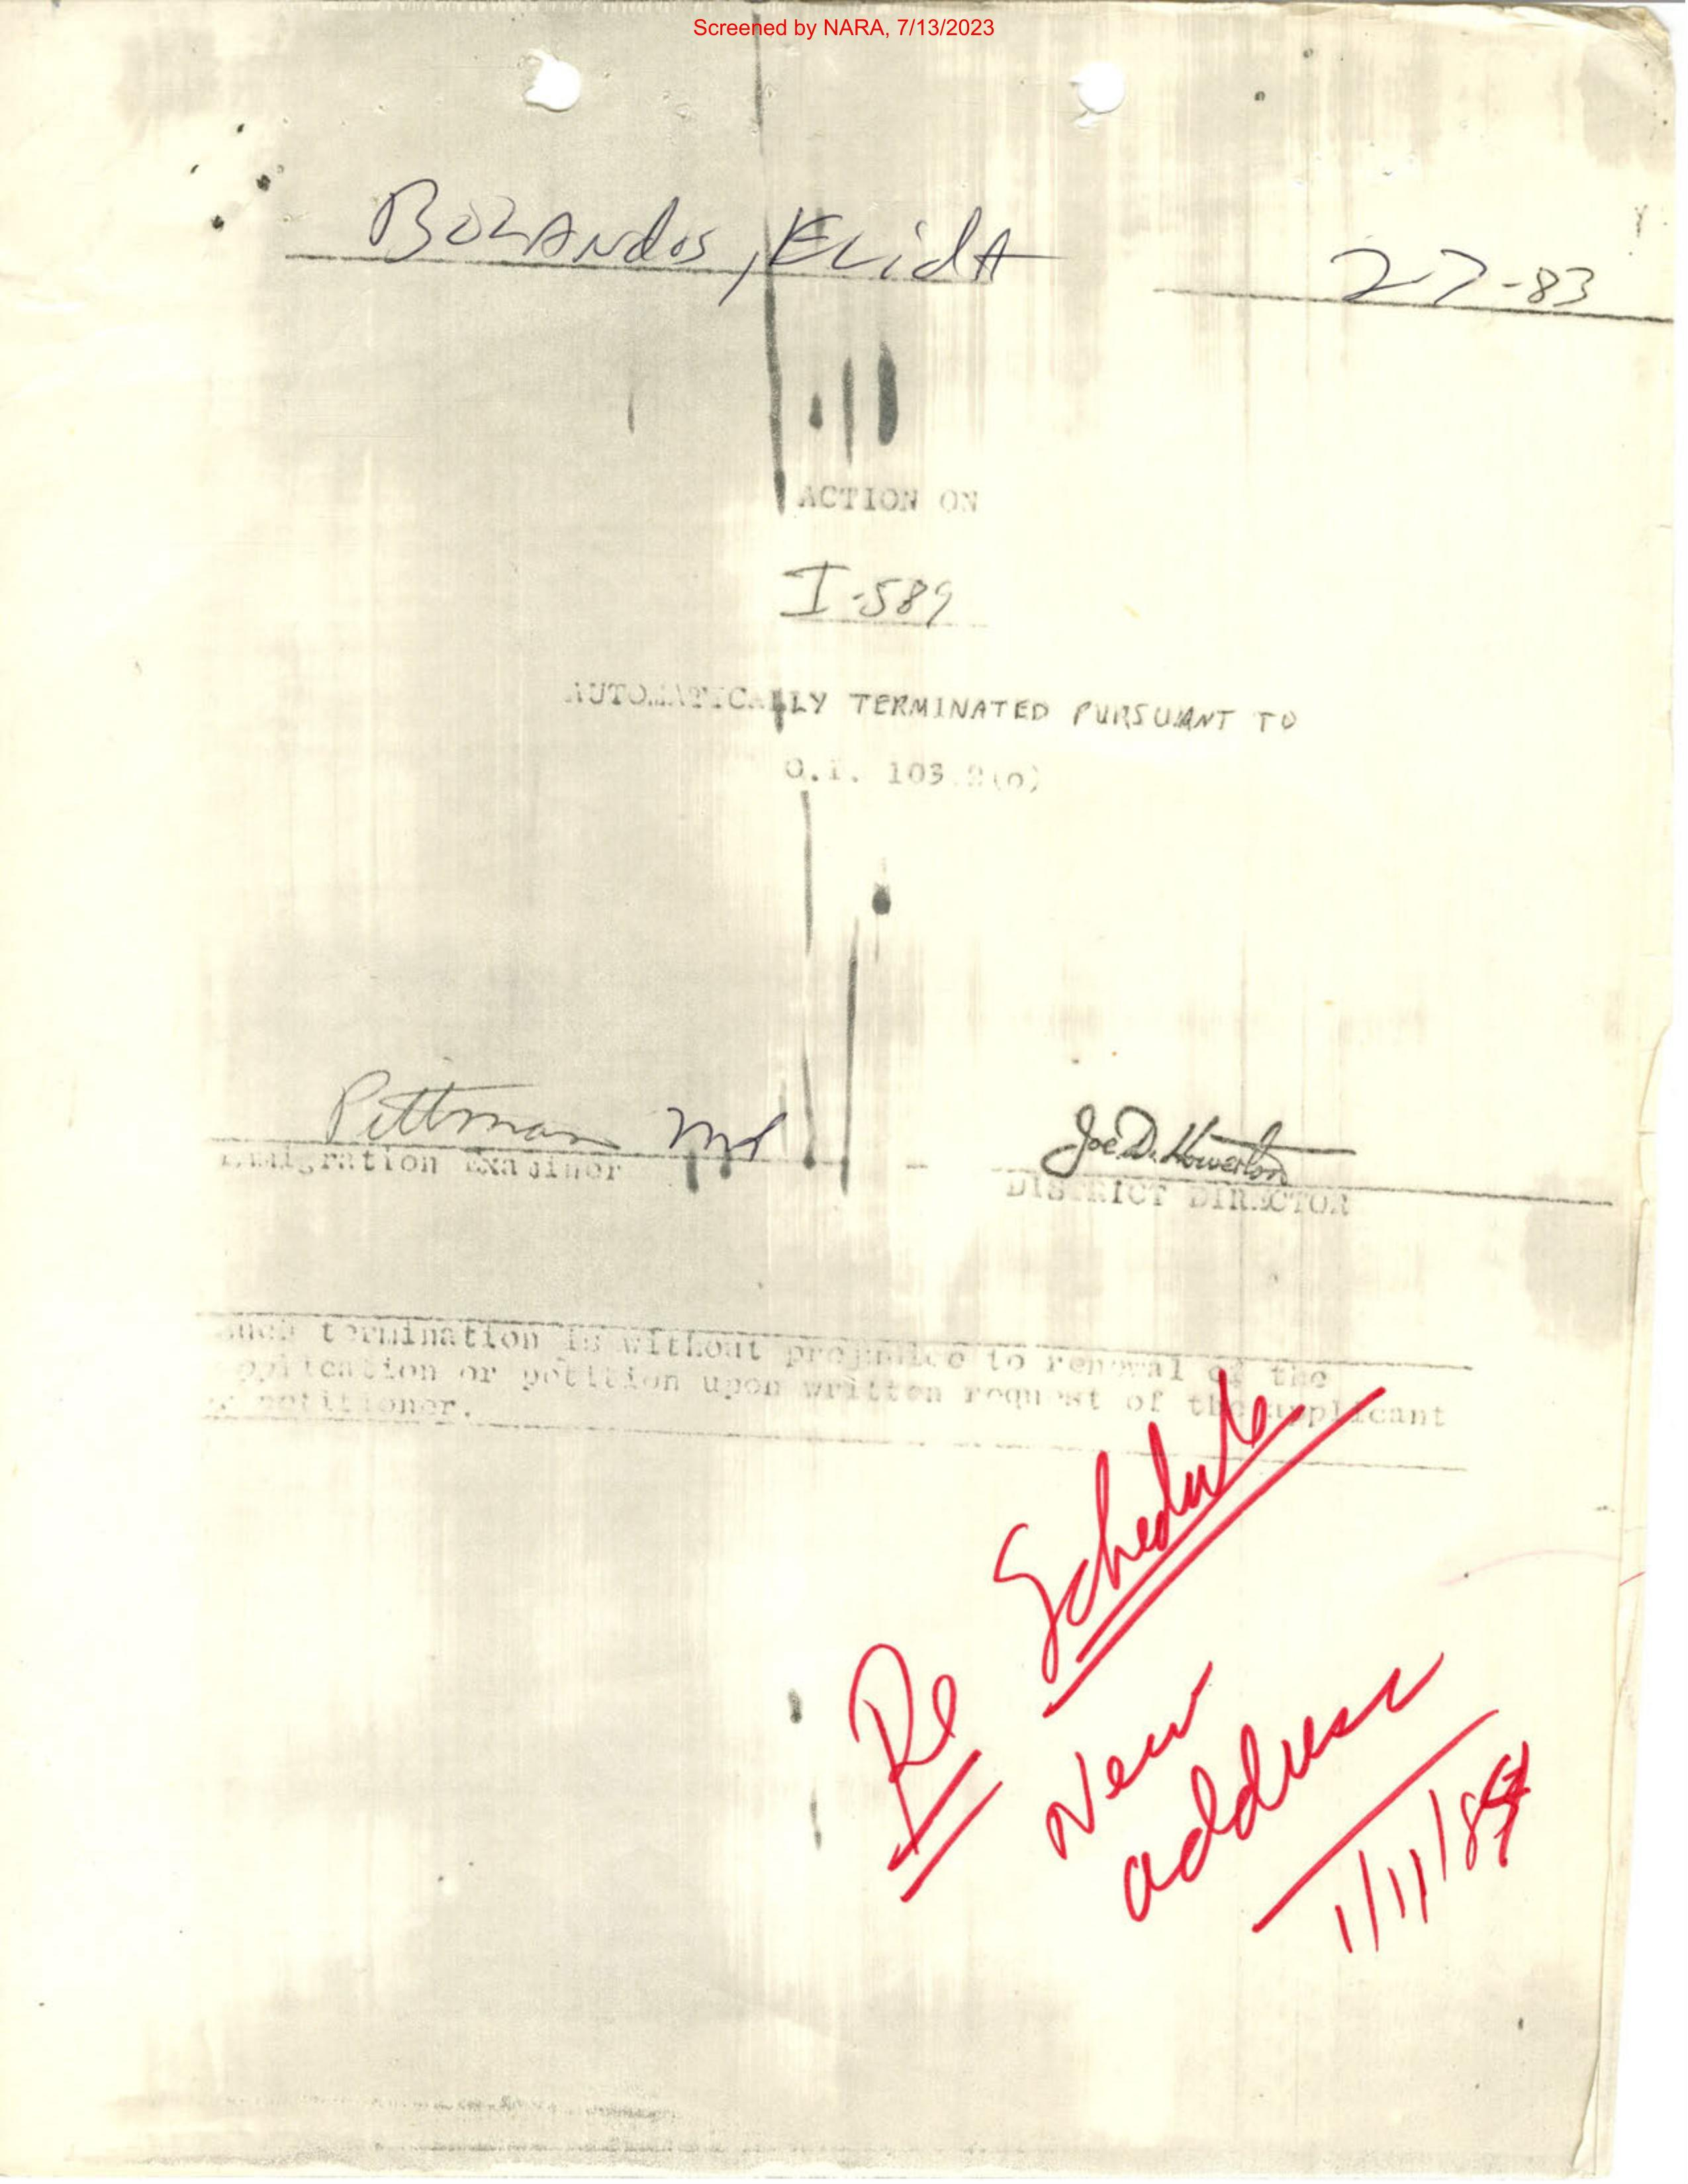 Screened by NARA, 7/13/2023
BOLANdos, ELidA
2-7-83
ACTION ON
I-589
AUTOMATICALLY TERMINATED PURSUANT TO
O.I. 103.2(o)
Pittman
Joe D. Howerton
Immigration Examiner
DISTRICT DIRECTOR
Such termination is without prejudice to renewal of the
application or petition upon written request of the applicant
or petitioner.
Re Schedule
New
address
1/11/84